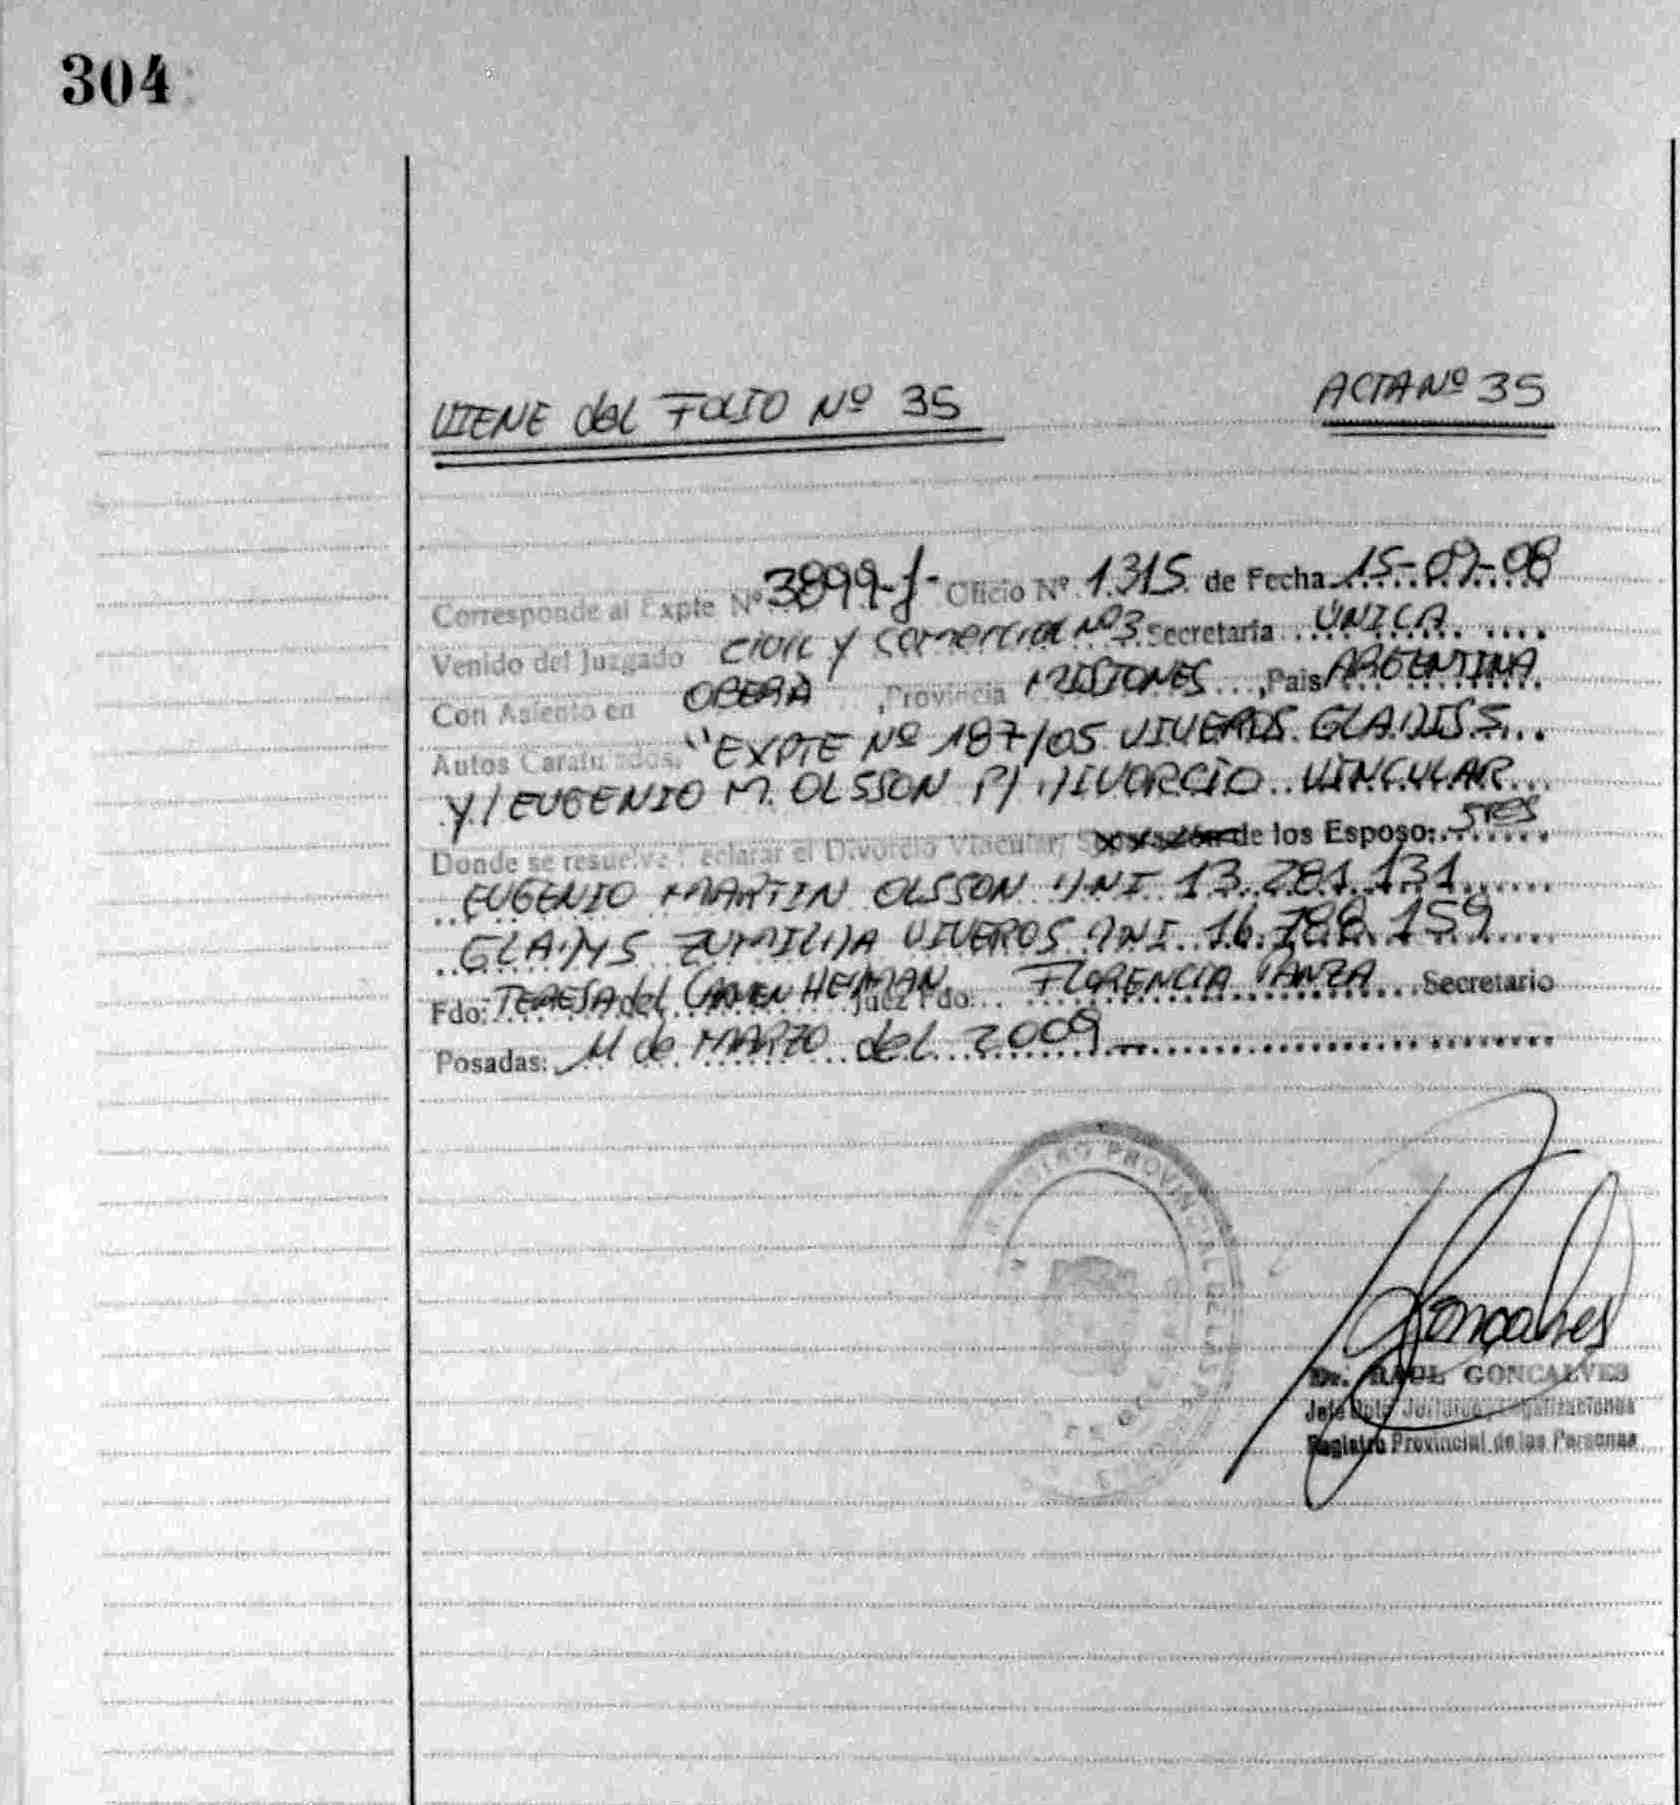 304
VIENE del FOLIO Nº 35
ACTA Nº 35
Corresponde al Expte Nº 3899-J- Oficio Nº 1315 de Fecha 15-09-08
Venido del Juzgado Civil y Comercial Nº3 Secretaria UNICA
Con Asiento en OBERA, Provincia MISIONES, Pais ARGENTINA
Autos Caratulados, "EXPTE Nº 187/05 VIVEROS GLADIS S.
Y/ EUGENIO M. OLSSON P/ DIVORCIO VINCULAR
Donde se resuelve: Declarar el Divorcio Vincular/ Separación de los Esposo: SRES
EUGENIO MARTIN OLSSON DNI 13.281.131
GLADYS ZUMILDA VIVEROS DNI 16.788.159
Fdo: TERESA del CARMEN HEDMAN Juez Fdo: FLORENCIA PANZA Secretario
Posadas: 11 de MARZO del 2009
REGISTRO PROVINCIAL DE LAS
Gonçalves
Dr. RAUL GONCALVES
Jefe Dpto. Jurídico y Legalizaciones
Registro Provincial de las Personas